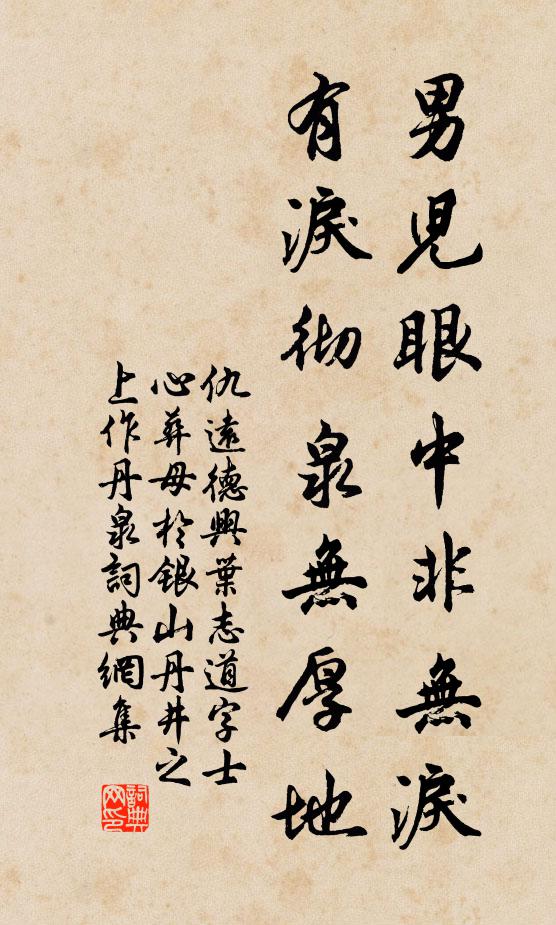 男兒眼中非無淚
有淚彻泉無厚地
仇遠德興葉志道字士
心葬母於銀山丹井之
上作丹泉詞典網集
詞典网印